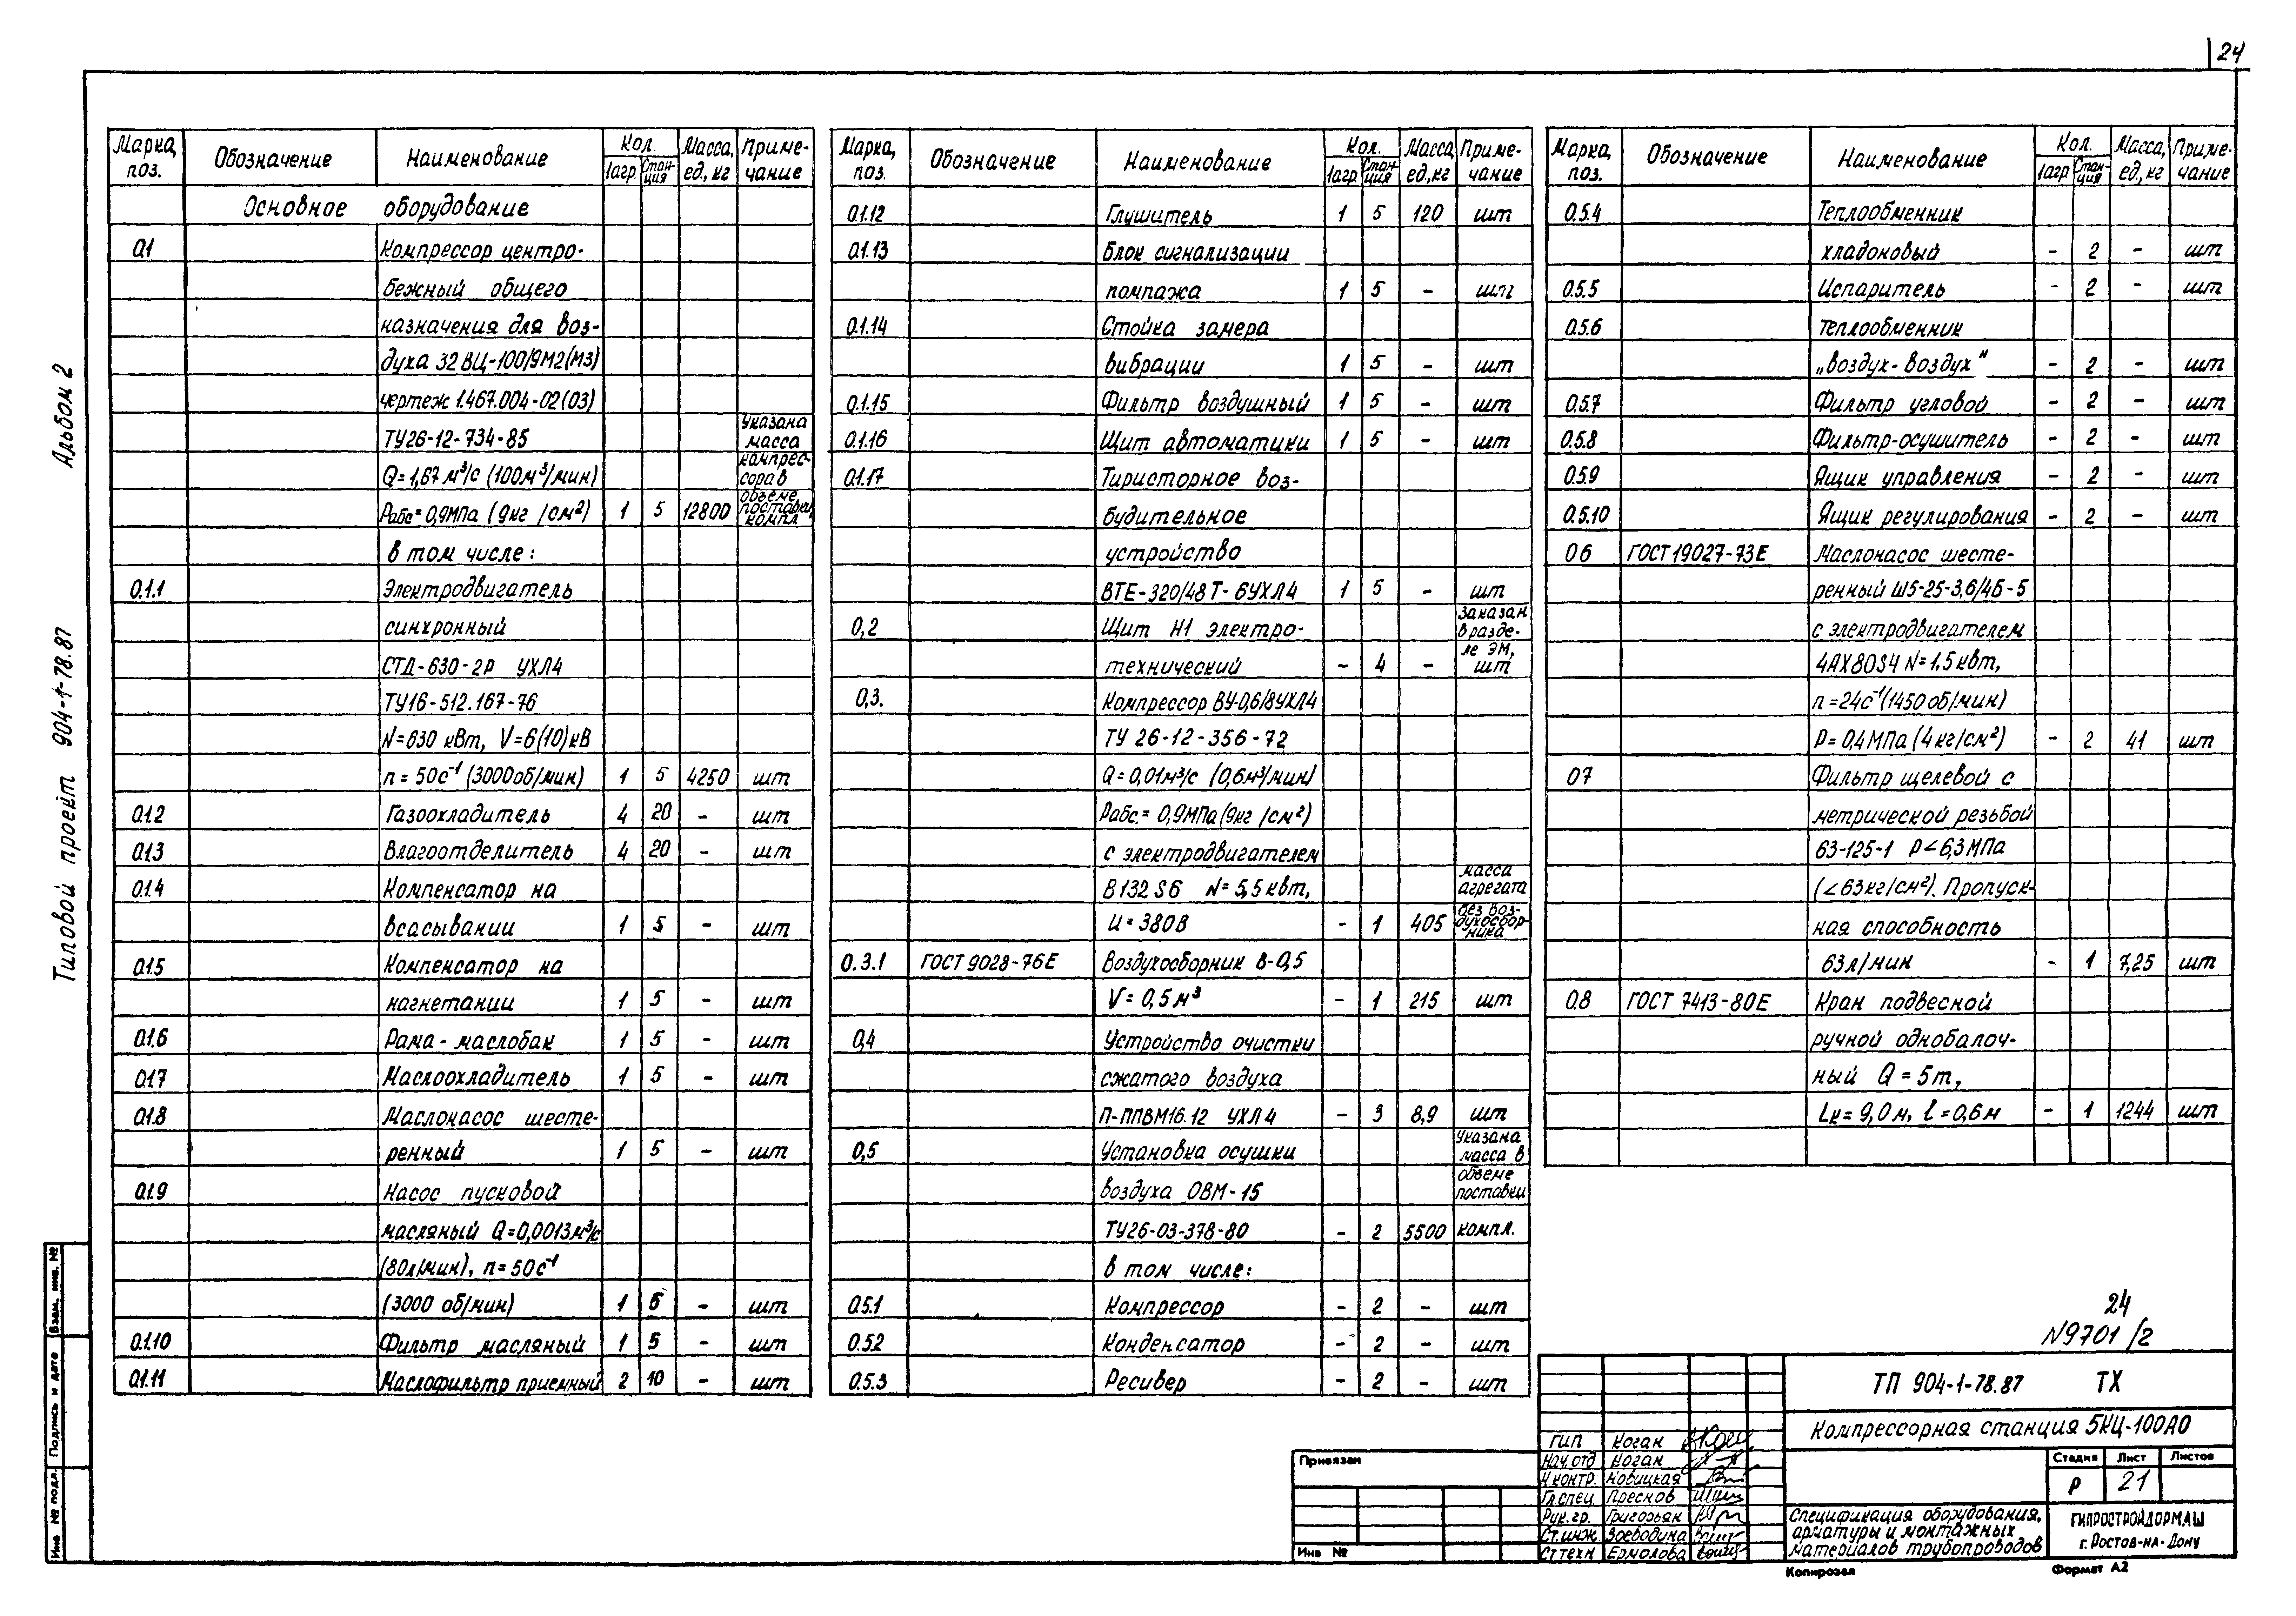 24
Альбом 2
Типовой проект 904-1-78.87
Марка, поз. Обозначение Наименование Кол. 1агр. Стан-ция Масса, ед., кг Приме-чание
Основное оборудование
0.1 Компрессор центро-
бежный общего
назначения для воз-
духа 32 ВЦ-100/9М2(М3)
чертеж 1.467.004-02(03)
ТУ26-12-734-85
Q=1,67 м³/с (100м³/мин)
Рабс=0,9МПа (9кг/см²) 1 5 12800 указана масса компрес-сора в объеме поставки, компл
в том числе:
0.1.1 Электродвигатель
синхронный
СТД-630-2Р УХЛ4
ТУ16-512.167-76
N=630 кВт, V=6(10)кВ
n=50с⁻¹ (3000об/мин) 1 5 4250 шт
0.1.2 Газоохладитель 4 20 - шт
0.1.3 Влагоотделитель 4 20 - шт
0.1.4 Компенсатор на
всасывании 1 5 - шт
0.1.5 Компенсатор на
нагнетании 1 5 - шт
0.1.6 Рама-маслобак 1 5 - шт
0.1.7 Маслоохладитель 1 5 - шт
0.1.8 Маслонасос шесте-
ренный 1 5 - шт
0.1.9 Насос пусковой
масляный Q=0,0013м³/с
(80л/мин), n=50с⁻¹
(3000 об/мин) 1 5 - шт
0.1.10 Фильтр масляный 1 5 - шт
0.1.11 Маслофильтр приемный 2 10 - шт
Марка, поз. Обозначение Наименование Кол. 1агр Стан-ция Масса, ед., кг Приме-чание
0.1.12 Глушитель 1 5 120 шт
0.1.13 Блок сигнализации
помпажа 1 5 - шт
0.1.14 Стойка замера
вибрации 1 5 - шт
0.1.15 Фильтр воздушный 1 5 - шт
0.1.16 Щит автоматики 1 5 - шт
0.1.17 Тиристорное воз-
будительное
устройство
ВТЕ-320/48Т-6УХЛ4 1 5 - шт
0,2 Щит Н1 электро-
технический - 4 - Заказан в разде-ле ЭМ, шт
0,3. Компрессор ВУ-0,6/8УХЛ4
ТУ 26-12-356-72
Q=0,01м³/с (0,6м³/мин)
Рабс.=0,9МПа (9кг/см²)
с электродвигателем
В132S6 N=5,5 квт,
U=380В - 1 405 масса агрегата без воз-духосбор-ника
0.3.1 ГОСТ 9028-76Е Воздухосборник В-0,5
V=0,5м³ - 1 215 шт
0,4 Устройство очистки
сжатого воздуха
П-ППВМ16.12 УХЛ4 - 3 8,9 шт
0,5 Установка осушки
воздуха ОВМ-15
ТУ26-03-378-80 - 2 5500 Указана масса в объеме поставки компл.
в том числе:
0.5.1 Компрессор - 2 - шт
0.5.2 Конденсатор - 2 - шт
0.5.3 Ресивер - 2 - шт
Марка, поз. Обозначение Наименование Кол. 1агр Стан-ция Масса, ед., кг Приме-чание
0.5.4 Теплообменник
хладоновый - 2 - шт
0.5.5 Испаритель - 2 - шт
0.5.6 Теплообменник
„воздух-воздух" - 2 - шт
0.5.7 Фильтр угловой - 2 - шт
0.5.8 Фильтр-осушитель - 2 - шт
0.5.9 Ящик управления - 2 - шт
0.5.10 Ящик регулирования - 2 - шт
0.6 ГОСТ 19027-73Е Маслонасос шесте-
ренный Ш5-25-3,6/4Б-5
с электродвигателем
4АХ80S4 N=1,5квт,
n=24с⁻¹ (1450об/мин)
Р=0,4МПа (4кг/см²) - 2 41 шт
07 Фильтр щелевой с
метрической резьбой
63-125-1 Р<6,3МПа
(<63кг/см²). Пропуск-
ная способность
63л/мин - 1 7,25 шт
0.8 ГОСТ 7413-80Е Кран подвесной
ручной однобалоч-
ный Q=5т,
Lк=9,0м, l=0,6м - 1 1244 шт
24
N9701/2
ТП 904-1-78.87 ТХ
Компрессорная станция 5КЦ-100АО
ГИП Коган
Нач.отд Коган
Н.контр. Новицкая
Гл.спец. Преснов
Рук.гр. Григорьян
Ст.инж. Воеводина
Ст техн Ермолова
Стадия Лист Листов
Р 21
Спецификация оборудования,
арматуры и монтажных
материалов трубопроводов
ГИПРОСТРОЙДОРМАШ
г. Ростов-на-Дону
Привязан
Инв №
Копировал Формат А2
Инв № подл. Подпись и дата Взам. инв. №